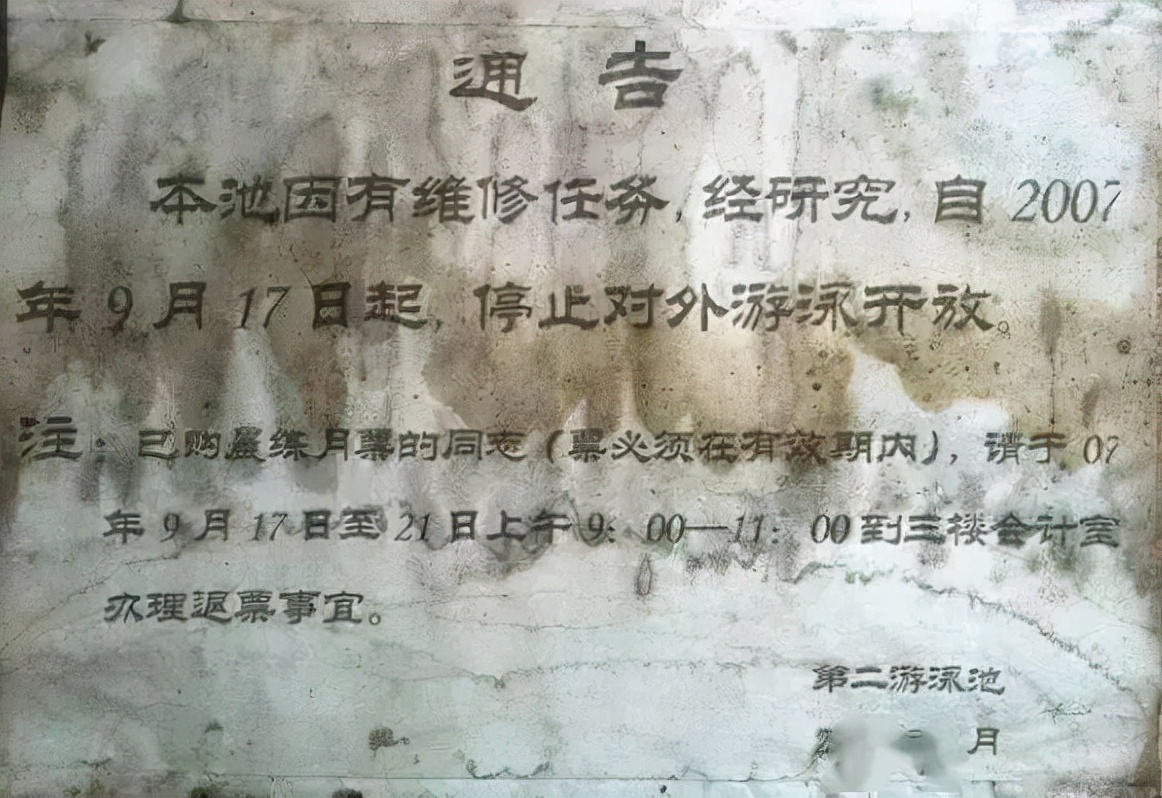 通告
本池因有维修任务,经研究,自 2007
年 9 月 17 日起, 停止对外游泳开放。
注: 已购晨练月票的同志(票必须在有效期内), 请于 07
年 9 月 17 日至 21 日上午 9: 00—11: 00 到三楼会计室
办理退票事宜。
第二游泳池
月